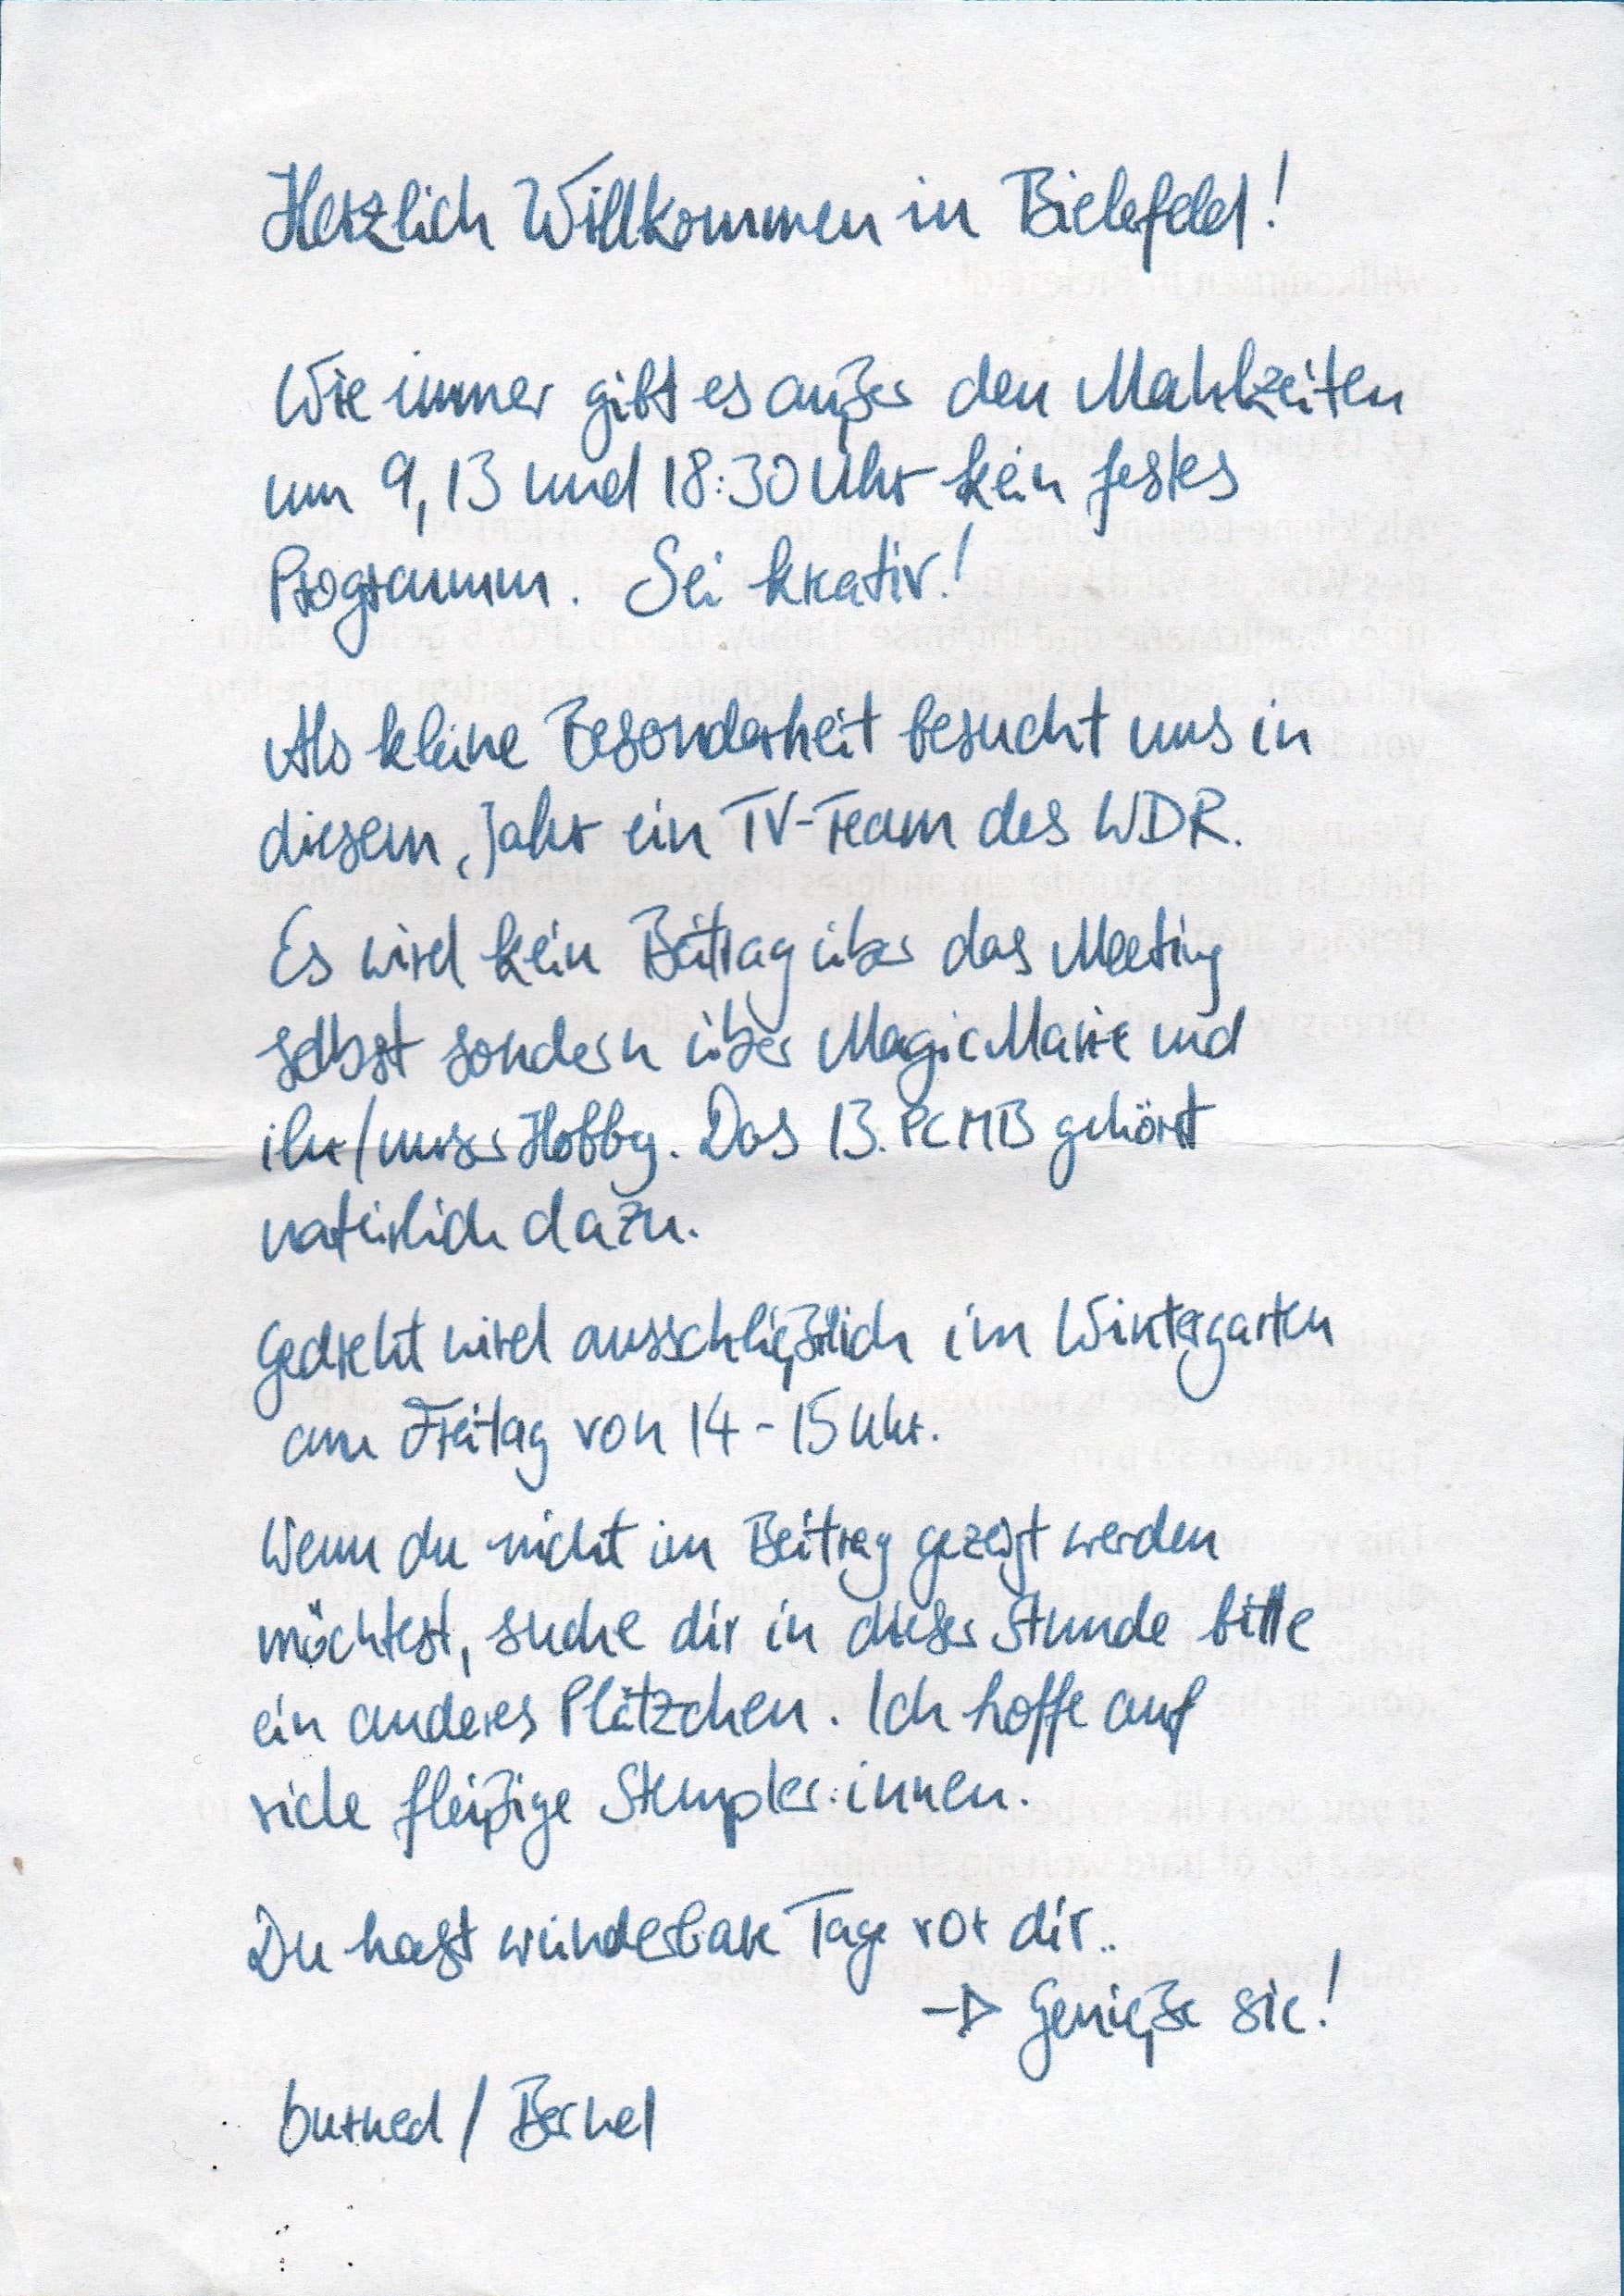 Herzlich Willkommen in Bielefeld!
Wie immer gibt es außer den Mahlzeiten
um 9, 13 und 18:30 Uhr kein festes
Programm. Sei kreativ!
Als kleine Besonderheit besucht uns in
diesem Jahr ein TV-Team des WDR.
Es wird kein Beitrag über das Meeting
selbst sondern über MagicMarie und
ihr/unser Hobby. Das 13. PCMB gehört
natürlich dazu.
Gedreht wird ausschließlich im Wintergarten
am Freitag von 14 - 15 Uhr.
Wenn du nicht im Beitrag gezeigt werden
möchtest, suche dir in dieser Stunde bitte
ein anderes Plätzchen. Ich hoffe auf
viele fleißige Stempler:innen.
Du hast wunderbare Tage vor dir..
→ Genieße sie!
burned / Bernd